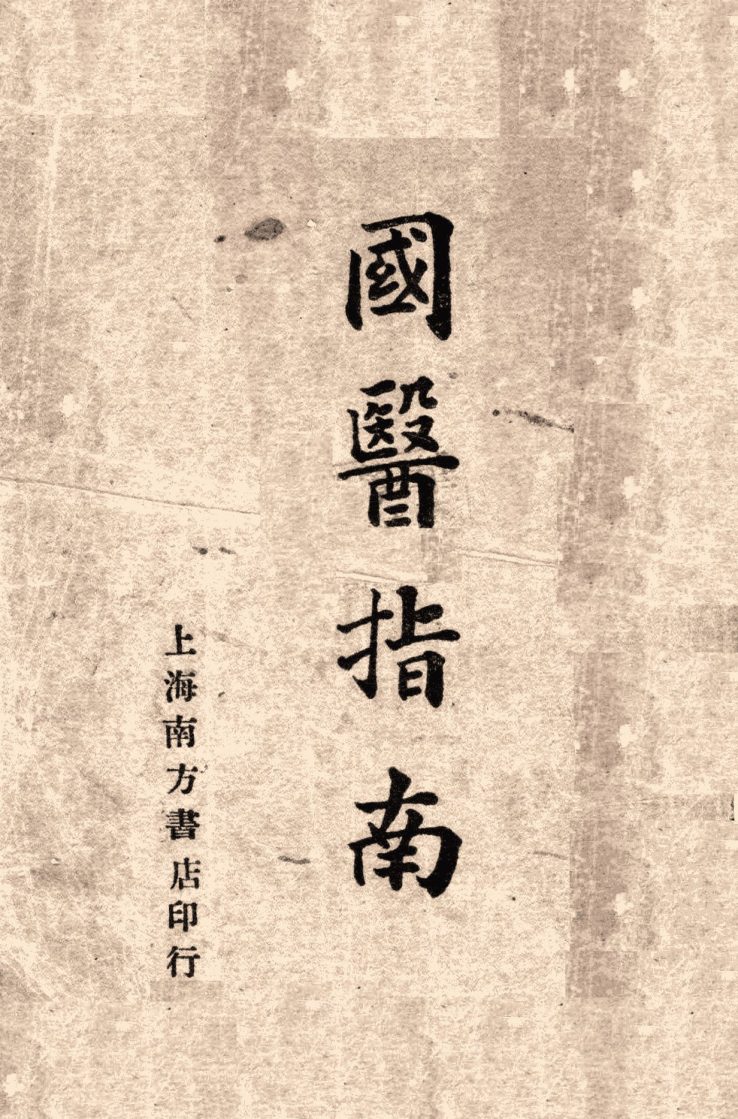 國醫指南
上海南方書店印行